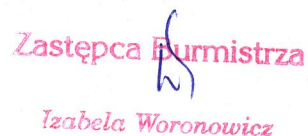 Zastępca Burmistrza
Izabela Woronowicz